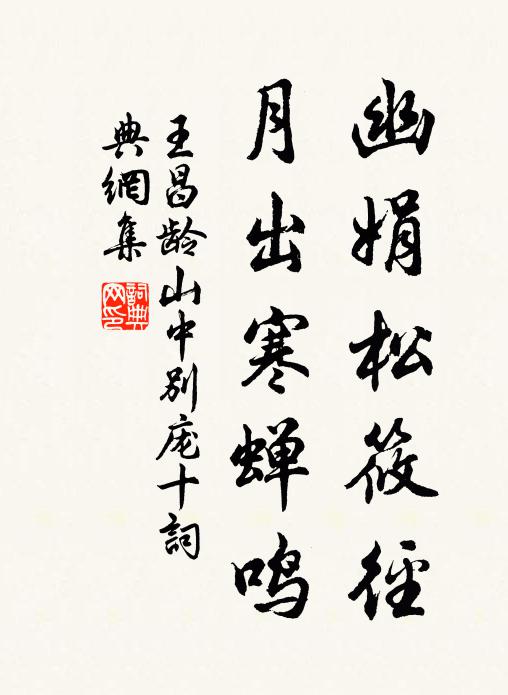 幽娟松筱径
月出寒蝉鸣
王昌龄山中别庞十詞
典網集
詞典
网印